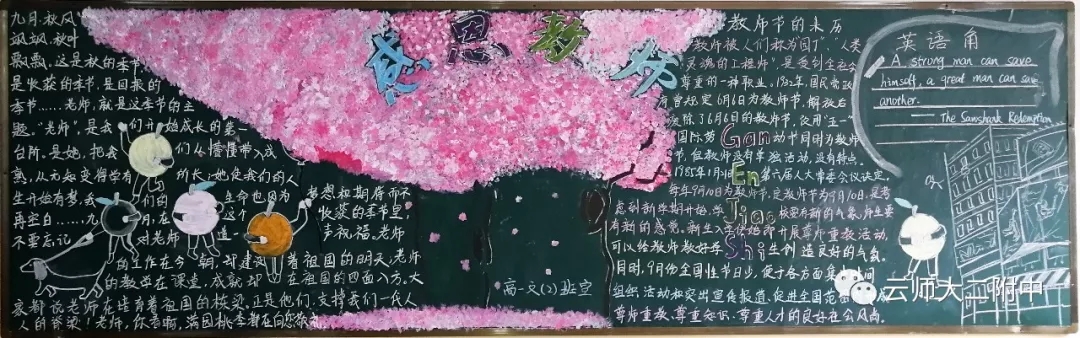 感恩教师
九月.秋风
飒飒.秋叶
飘飘.这是秋的季节
是收获的季节.是回报的
季节……老师,就是这季节的主
题。"老师",是我们开始成长的第一
台阶.是她,把我们从懵懂带入成
熟,从无知变得学有所长;她使我们的人
生开始有梦,我们的生命也因为梦想和期待而不
再空白……九月,在这个收获的季节里,
不要忘记对老师道声祝福。老师
的工作在今朝,却建设着祖国的明天;老师
的教学在课堂,成就却在祖国的四面八方。大
家都说老师在培育着祖国的栋梁,正是他们,支撑我们一代人
人的脊梁!老师,你看啊,满园桃李都在向您敬
高一文(2)班宣
教师节的来历
"教师被人们称为园丁","人类
灵魂的工程师",是受到全社会
尊重的一种职业。1932年,国民党政
府曾规定6月6日为教师节,解放后
废除了6月6日的教师节,改用"五一"
国际劳动节同时为教师
节,但教师没有单独活动,没有特点。
1985年1月第六届人大常委会议决定,
每年9月10日为教师节,定教师节为9月10日,是考
虑到新学期开始,学校要有新的气象,师生要
有新的感觉。新生入学伊始即开展尊师重教活动,
可以给教师教好学生创造良好的气氛。
同时,9月份全国性节日少,便于各方面集中时间
组织活动和突出宣传报道,促进全国范
尊师重教、尊重知识、尊重人才的良好社会风尚。
Gan
En
Jiao
Shi
英语角
A strong man can save
himself, a great man can save
another.
The Sawshank Redemption
云师大二附中